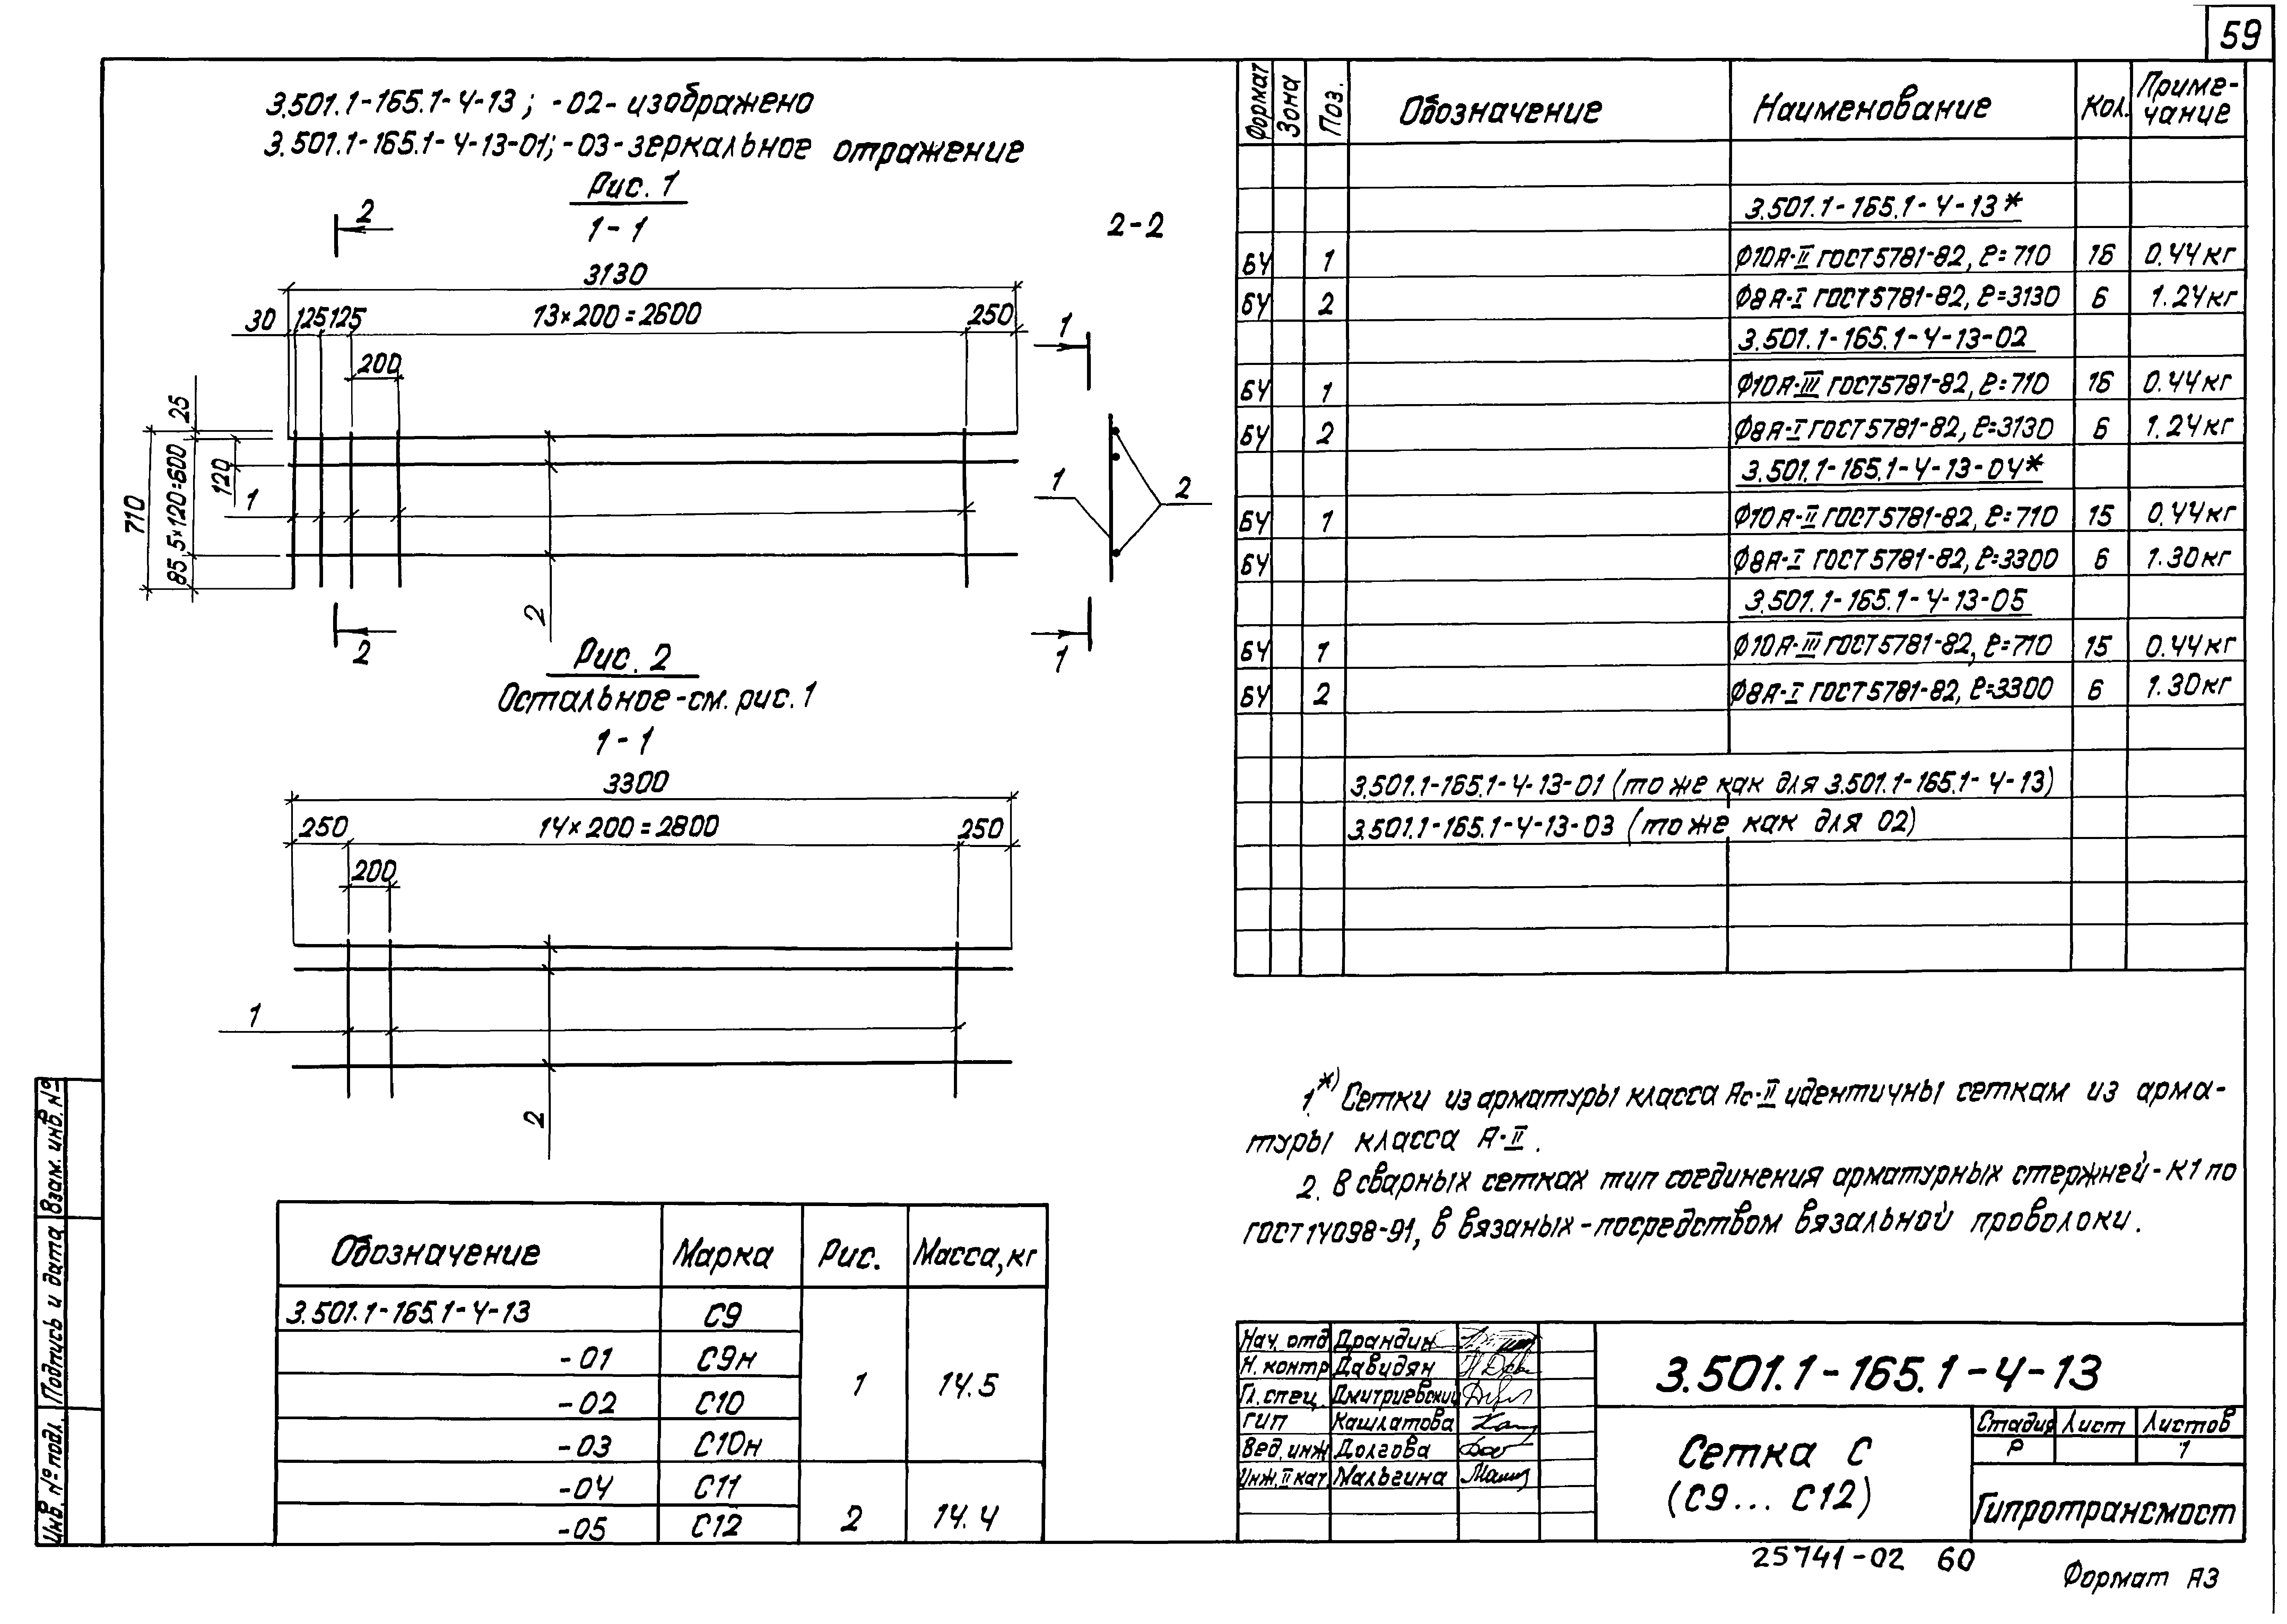 59
3.501.1-165.1-4-13; -02- изображено
3.501.1-165.1-4-13-01; -03-зеркальное отражение
Рис. 1
1-1
2-2
2
3130
30 125 125 13×200=2600 250
200
1
25
120
5×120=600
85
710
1
2
2
1
2
1
Рис. 2
Остальное-см. рис. 1
1-1
3300
250 14×200=2800 250
200
1
2
Обозначение Марка Рис. Масса, кг
3.501.1-165.1-4-13 С9 1 14.5
-01 С9н
-02 С10
-03 С10н
-04 С11 2 14.4
-05 С12
Формат Зона Поз. Обозначение Наименование Кол. Приме-
чание
3.501.1-165.1-4-13*
БЧ 1 Ф10А-II ГОСТ 5781-82, ℓ=710 16 0.44кг
БЧ 2 Ф8А-I ГОСТ 5781-82, ℓ=3130 6 1.24кг
3.501.1-165.1-4-13-02
БЧ 1 Ф10А-III ГОСТ 5781-82, ℓ=710 16 0.44кг
БЧ 2 Ф8А-I ГОСТ 5781-82, ℓ=3130 6 1.24кг
3.501.1-165.1-4-13-04*
БЧ 1 Ф10А-II ГОСТ 5781-82, ℓ=710 15 0.44кг
БЧ Ф8А-I ГОСТ 5781-82, ℓ=3300 6 1.30кг
3.501.1-165.1-4-13-05
БЧ 1 Ф10А-III ГОСТ 5781-82, ℓ=710 15 0.44кг
БЧ 2 Ф8А-I ГОСТ 5781-82, ℓ=3300 6 1.30кг
3.501.1-165.1-4-13-01 (то же как для 3.501.1-165.1-4-13)
3.501.1-165.1-4-13-03 (то же как для 02)
1*) Сетки из арматуры класса Ас-II идентичны сеткам из арма-
туры класса А-II.
2. В сварных сетках тип соединения арматурных стержней-К1 по
ГОСТ 14098-91, в вязаных-посредством вязальной проволоки.
Нач. отд Драндин
Н. контр Давидян
Гл. спец. Дмитриевский
ГИП Кашлатова
Вед. инж Долгова
Инж. II кат. Мальгина
3.501.1-165.1-4-13
Сетка С
(С9... С12)
Стадия Лист Листов
Р 1
Гипротрансмост
25741-02 60
Формат А3
Взам. инв. №
Подпись и дата
Инв. № подл.